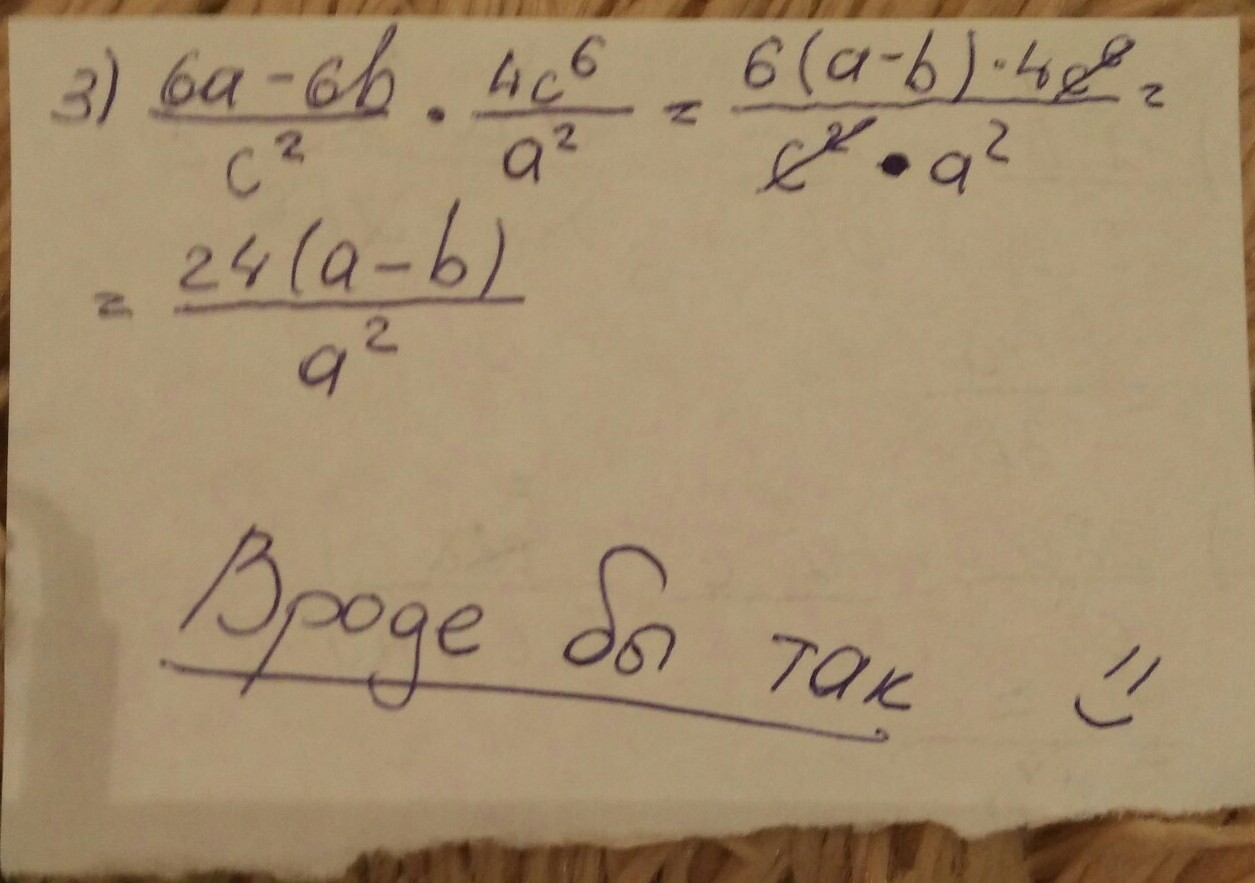 3) (6a-6b)/c² · 4c⁶/a² = (6(a-b)·4c⁶)/(c²·a²) =
= 24(a-b)/a²
Вроде бы так